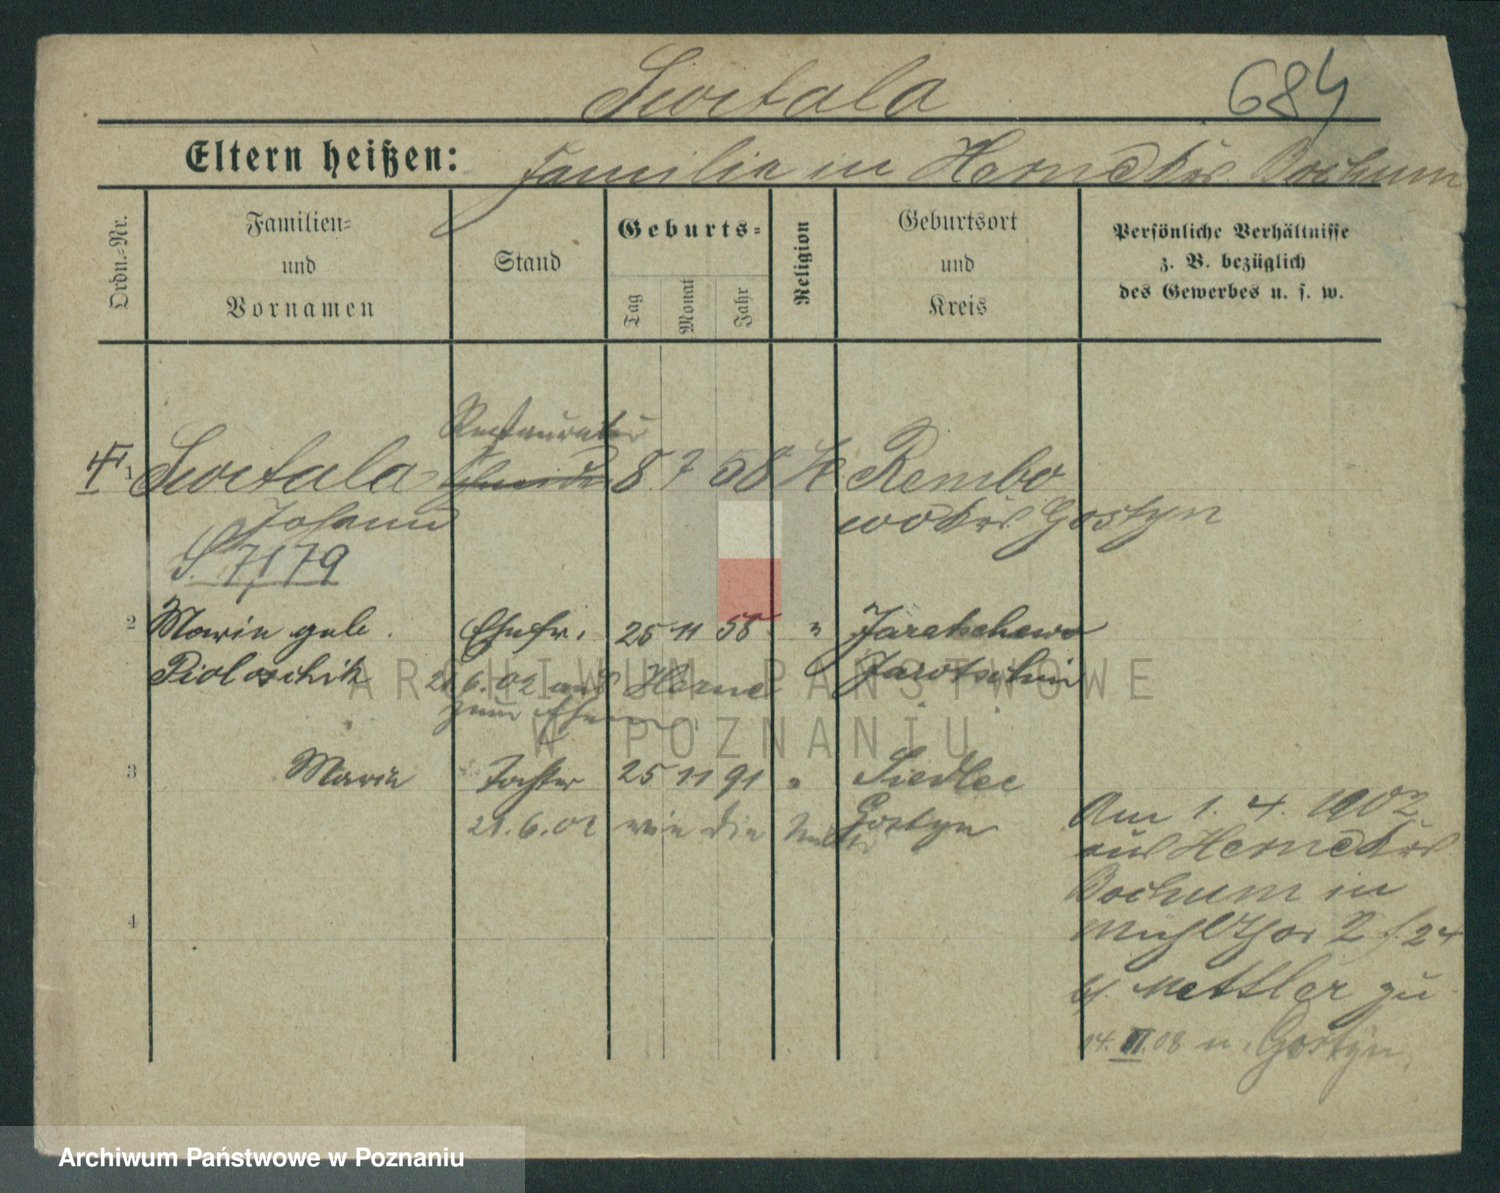 Switala
684
Eltern heißen:
Familie in Herne Krs Bochum
Ordn.-Nr.
Familien-
und
Vornamen
Stand
Geburts-
Tag
Monat
Jahr
Religion
Geburtsort
und
Kreis
Persönliche Verhältnisse
z. B. bezüglich
des Gewerbes u. s. w.
Restaurateur
1 Switala 8 7 58 K Rembo
Johann wo Krs Gostyn
S. 7179
2 Marie geb. Ehefr. 25 11 58 " Jaratschewo
Pioloschik 21.6.02 aus Herne Jarotschin
zum
3 Marie Tochter 25 11 91 " Siedlec
21.6.02 wie die Mutter Gostyn
Am 1. 4. 1902
aus Herne Krs
Bochum in
Mühlthor 2
b/ Mettler zu
4
14. VI. 08 n. Gostyn
ARCHIWUM PAŃSTWOWE
W POZNANIU
Archiwum Państwowe w Poznaniu